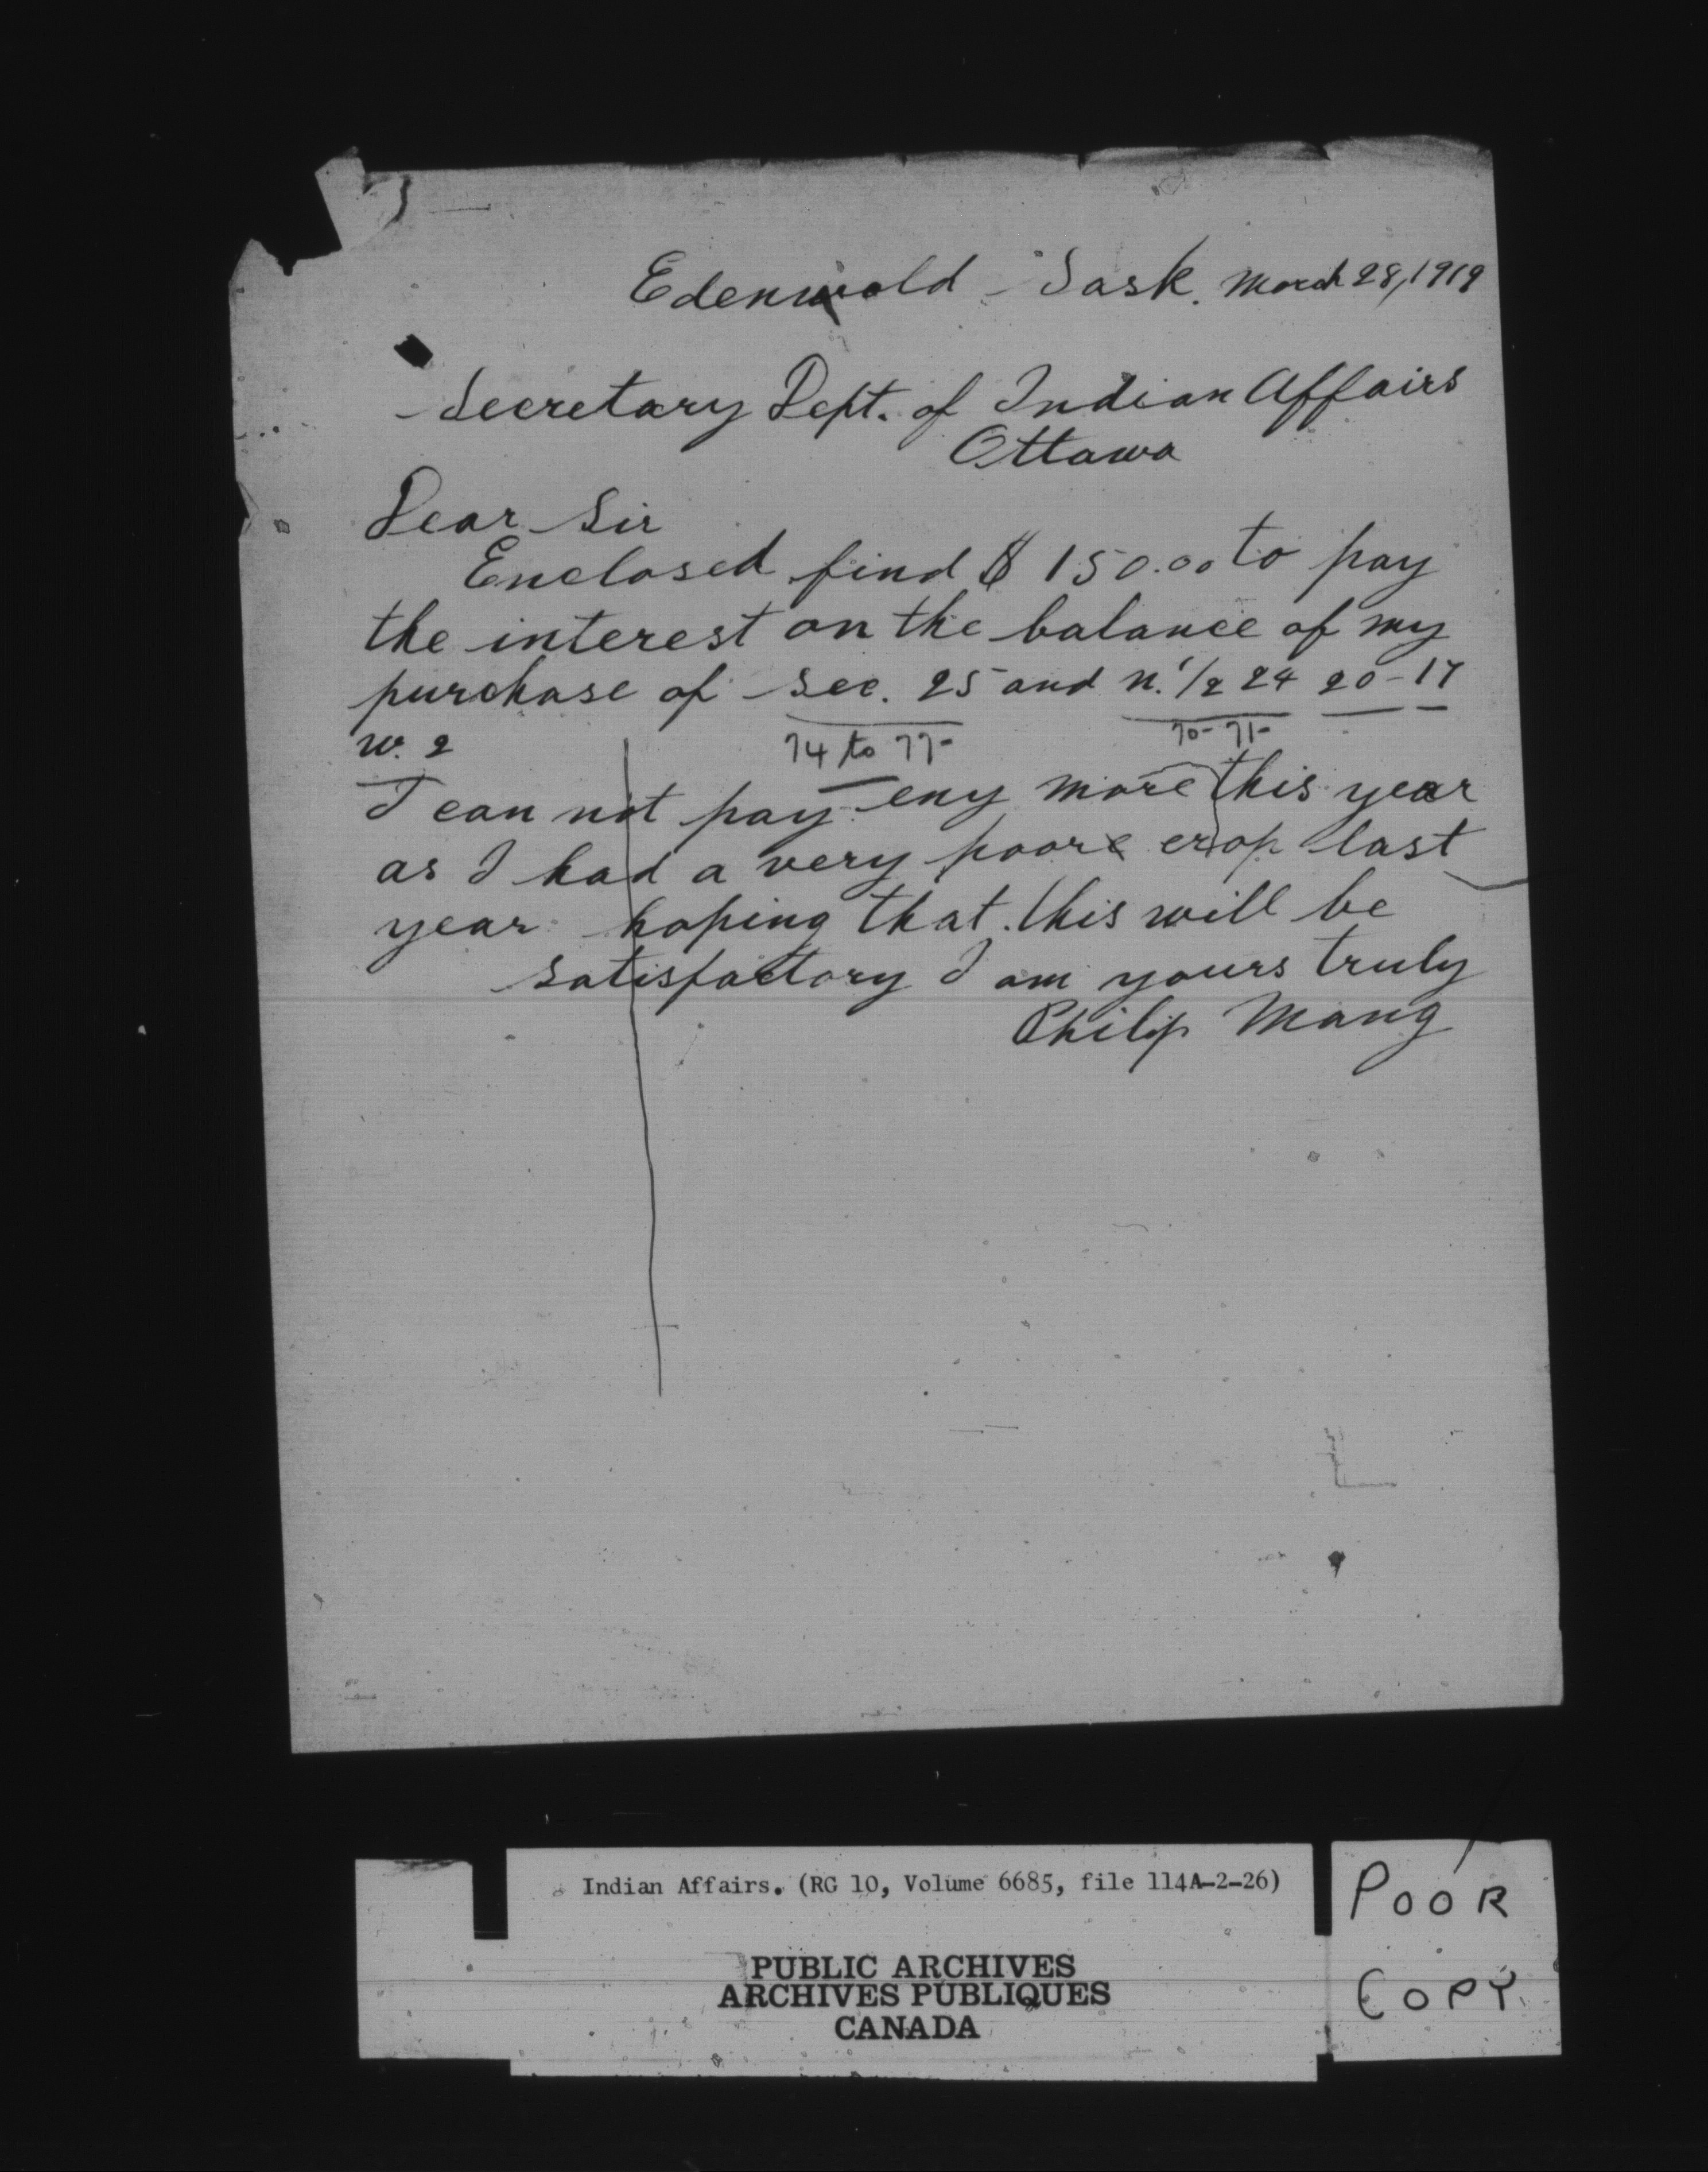 Edenwold Sask. March 28, 1919
Secretary Dept. of Indian Affairs
Ottawa
Dear Sir
Enclosed find $150.00 to pay
the interest on the balance of my
purchase of Sec. 25 and N. 1/2 24 20-17
W. 2
74 to 77- 70-71-
I can not pay eny more this year
as I had a very poore crop last
year hoping that this will be
satisfactory I am yours truly
Philip Mang
Indian Affairs. (RG 10, Volume 6685, file 114A-2-26)
PUBLIC ARCHIVES
ARCHIVES PUBLIQUES
CANADA
POOR
COPY